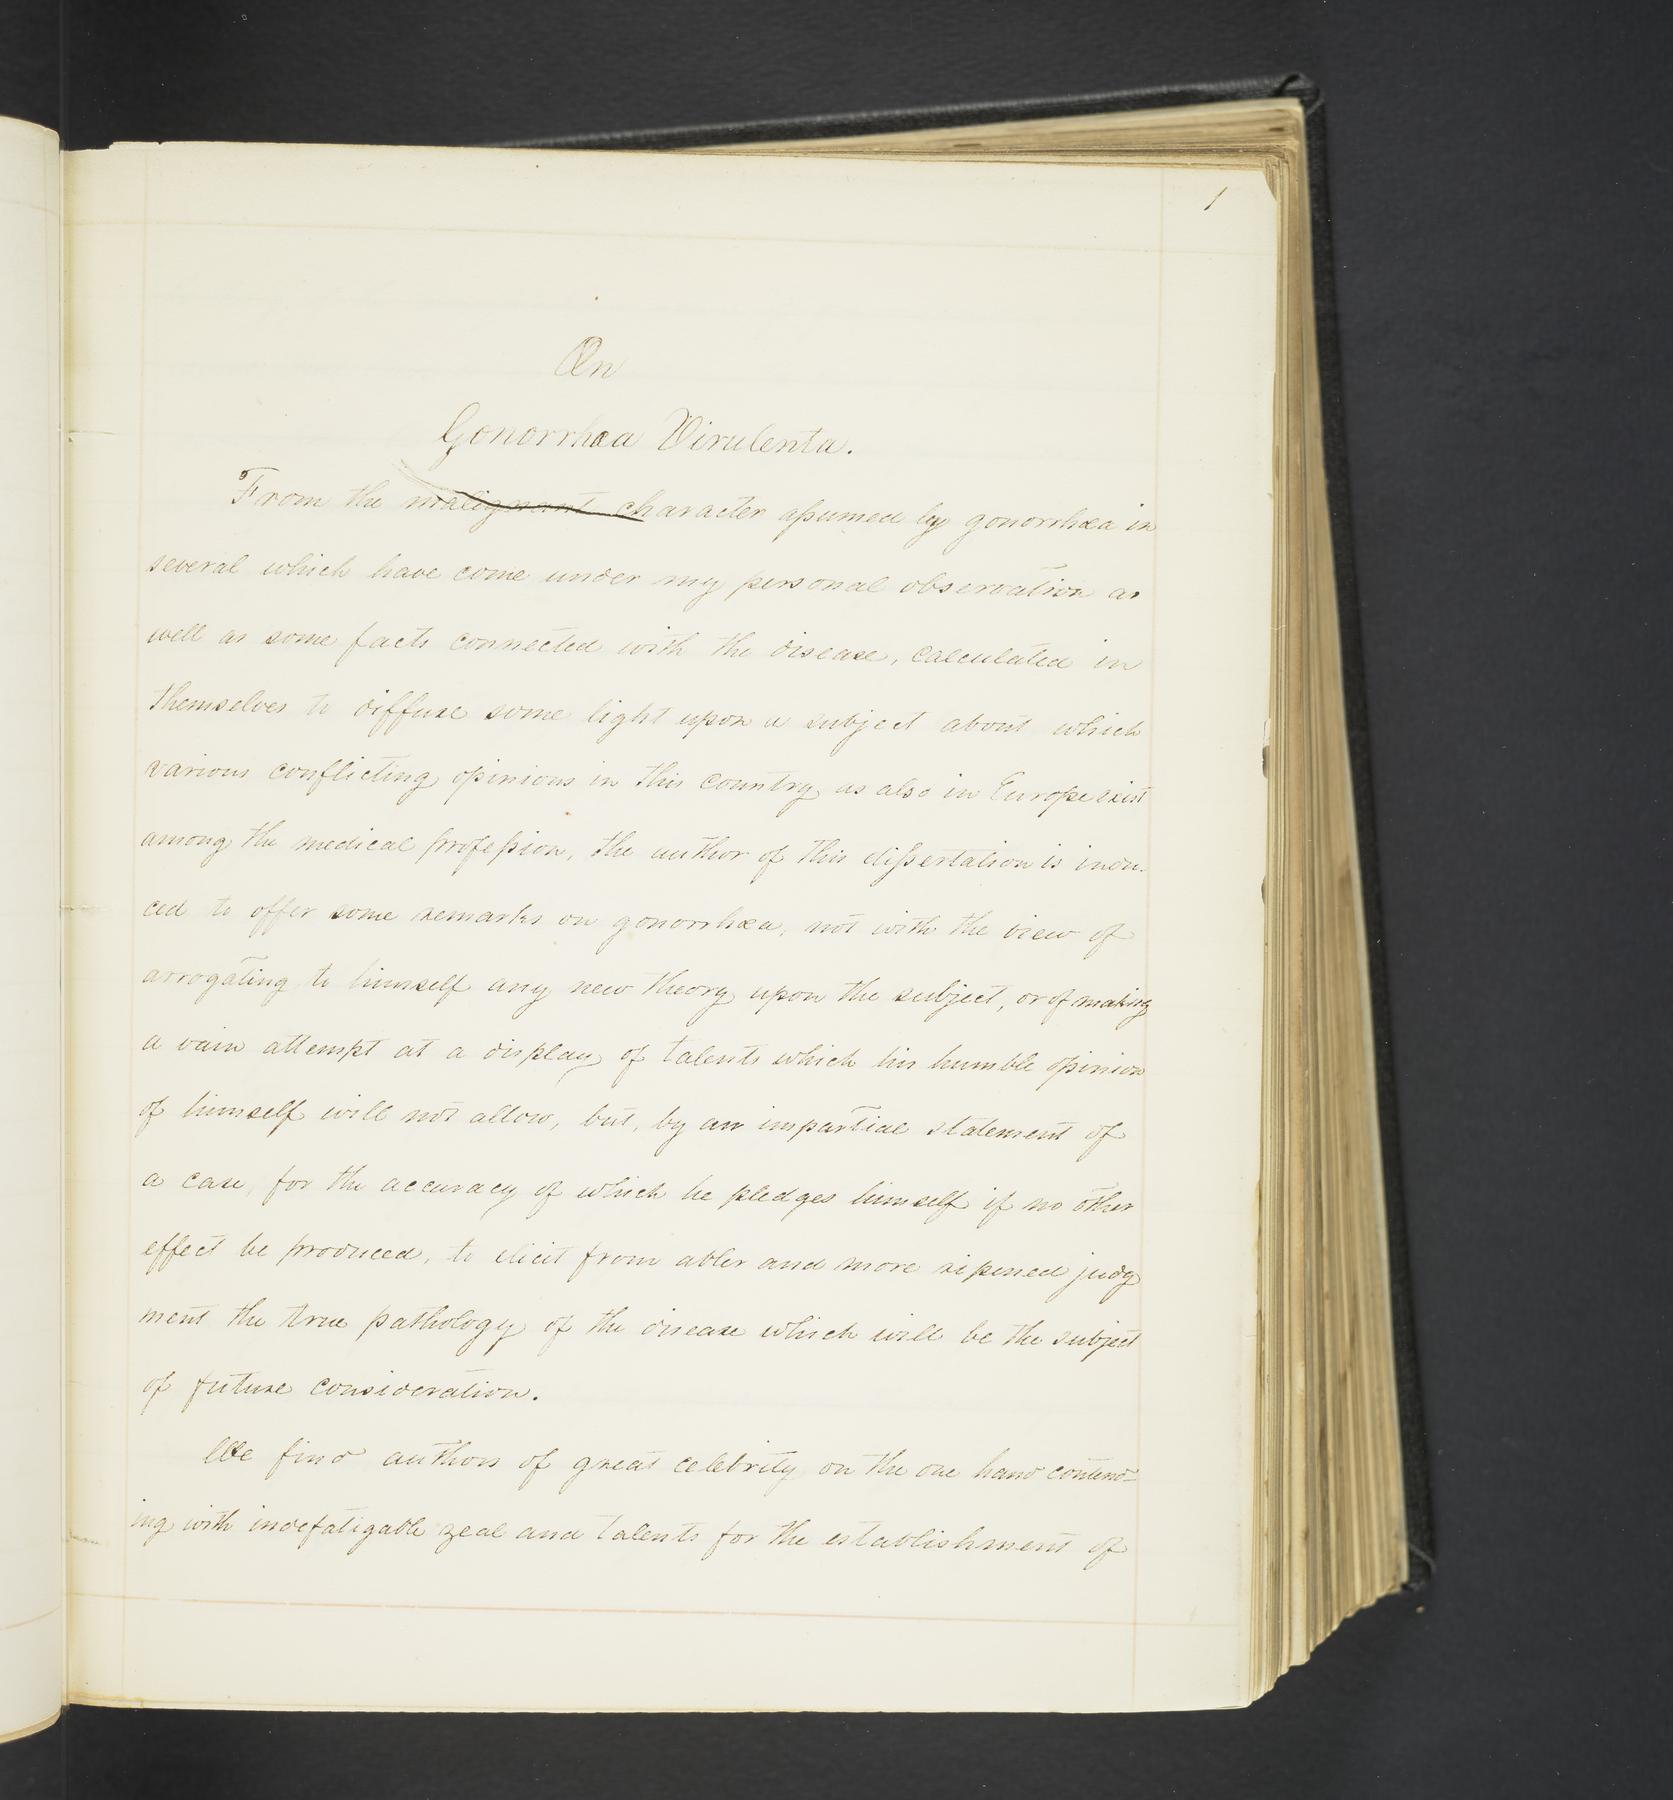 1
On
Gonorrhœa Virulenta.
From the malignant character assumed by gonorrhœa in
several which have come under my personal observation as
well as some facts connected with the disease, calculated in
themselves to diffuse some light upon a subject about which
various conflicting opinions in this country as also in Europe exist
among the medical profession, the author of this dissertation is indu-
ced to offer some remarks on gonorrhœa, not with the view of
arrogating to himself any new theory upon the subject, or of making
a vain attempt at a display of talents which his humble opinion
of himself will not allow, but, by an impartial statement of
a case, for the accuracy of which he pledges himself if no other
effect be produced, to elicit from abler and more ripened judg
ment the true pathology of the disease which will be the subject
of future consideration.
We find authors of great celebrity on the one hand contend-
ing with indefatigable zeal and talents for the establishment of